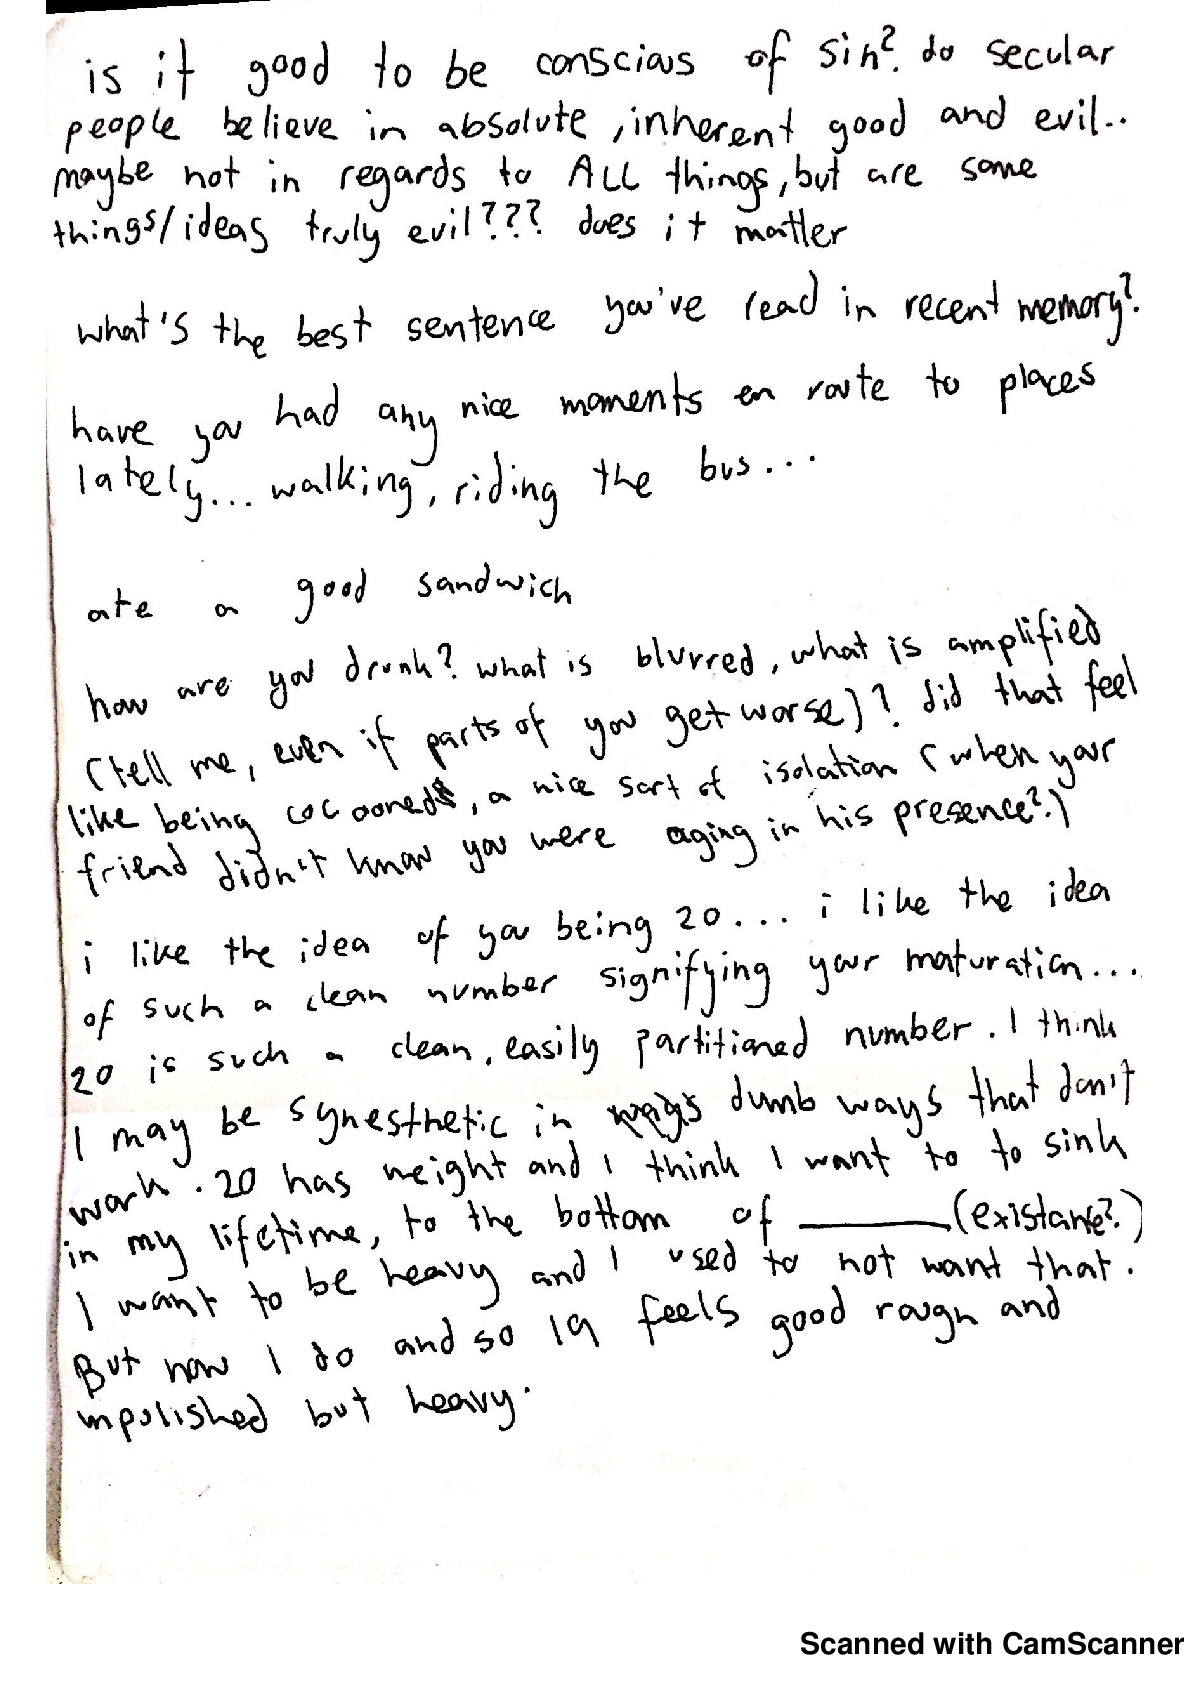 is it good to be conscious of sin? do secular
people believe in absolute, inherent good and evil..
maybe not in regards to ALL things, but are some
things/ideas truly evil??? does it matter
what's the best sentence you've read in recent memory?
have you had any nice moments en route to places
lately... walking, riding the bus...
ate a good sandwich
how are you drunk? what is blurred, what is amplified
(tell me, even if parts of you get worse)? did that feel
like being cocooned, a nice sort of isolation (when your
friend didn't know you were aging in his presence?)
i like the idea of you being 20... i like the idea
of such a clean number signifying your maturation...
20 is such a clean, easily partitioned number. I think
I may be synesthetic in ways dumb ways that don't
work. 20 has weight and I think I want to to sink
in my lifetime, to the bottom of ______ (existance?)
I want to be heavy and I used to not want that.
But now I do and so 19 feels good rough and
unpolished but heavy.
Scanned with CamScanner